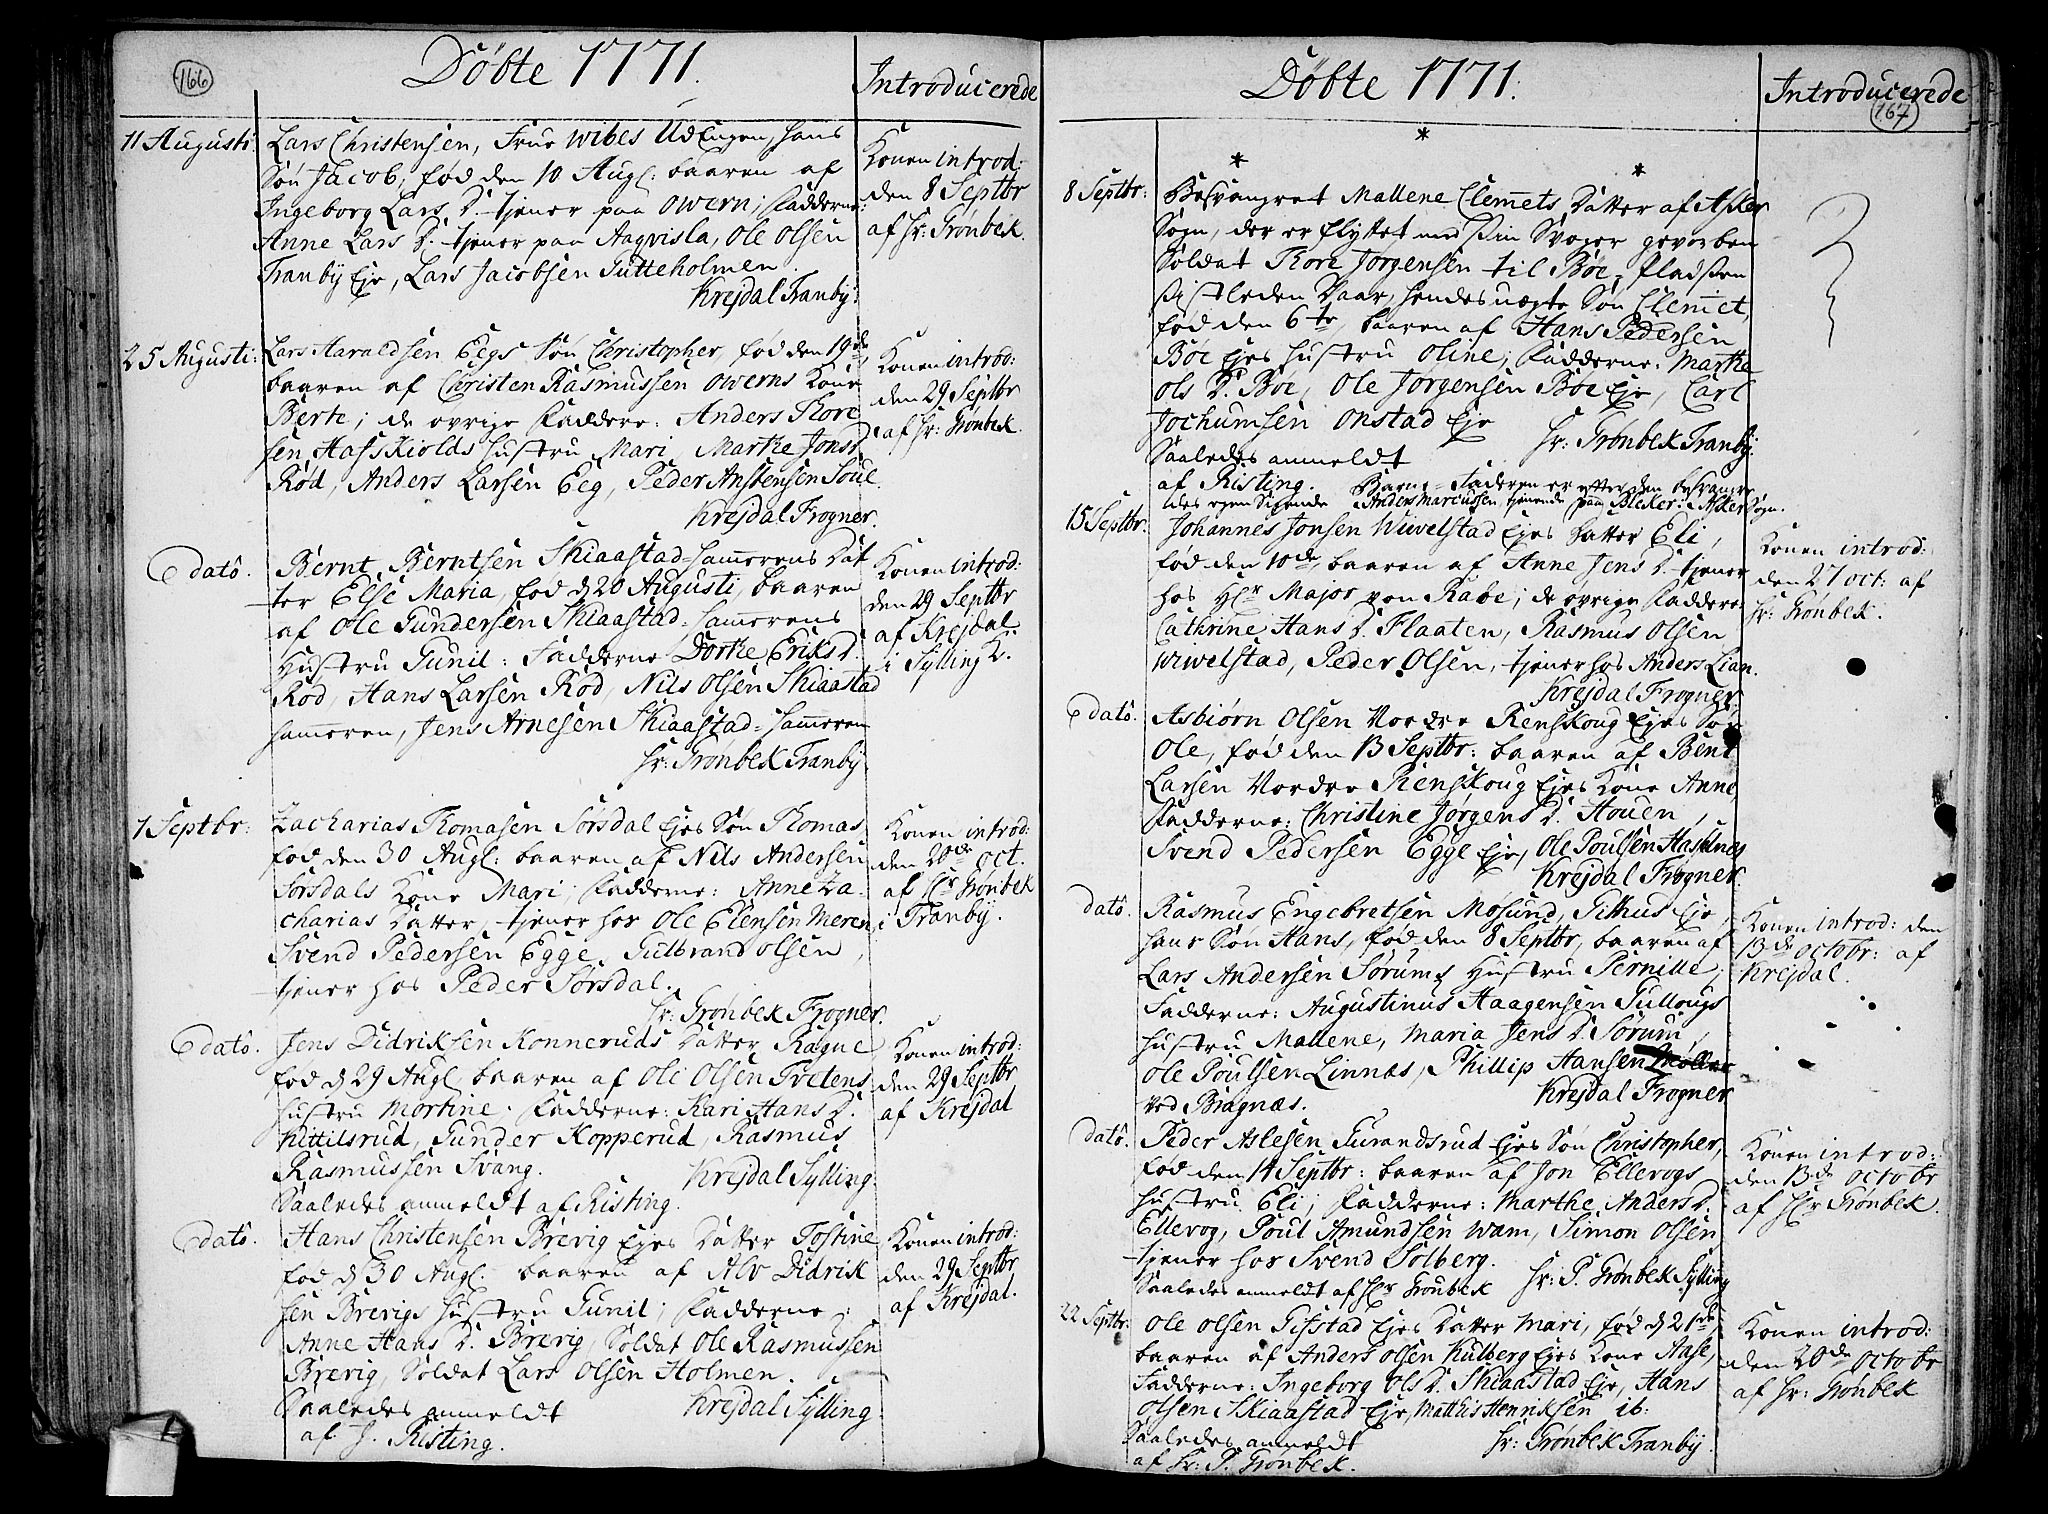 166
Döbte 1771.
Introducerede
11 Augusti:
Lars Christensen, Frue Wibes UdEngen, hans
Sön Jacob, fød den 10 Augl: baaren af
Ingeborg Lars D. tjener paa Owern; Fadderne:
Anne Lars D. tjener paa Aagvisla, Ole Olsen
Tranbÿ Eje, Lars Jacobsen Gutteholmen.
Krejdal Tranbÿ.
Konen introd:
den 8 Septbr
af Hr: Grönbek.
25 Augusti:
Lars Haraldsen Eegs Sön Christopher, fød den 19de
baaren af Christen Rasmussen Owerns Kone
Berte; de øvrige Faddere: Anders Thore
sen Hafskiolds Hustru Mari, Marthe Jons D.
Rød, Anders Larsen Eeg, Peder Anstensen Soue.
Krejdal Frogner.
Konen introd:
den 29 Septbr
af Hr: Grönbek.
Edatô.
Bernt Berntsen Skiaastad-Hammerens Dat
ter Else Maria, fød d 20 Augusti, baaren
af Ole Gundersen Skiaastad-Hammerens
Hustru Gunil: Fadderne Dorthe Eriks D.
Rød, Hans Larsen Rød, Nils Olsen Skiaastad
Hammeren, Jens Arnesen Skiaastad-Hammeren
Hr: Grönbek Tranbÿ.
Konen introd:
den 29 Septbr
af Krejdal
i Sylling K.
1 Septbr:
Zacharias Thomasen Sørsdal Ejes Sön Thomas
fød den 30 Augl: baaren af Nils Andersen
Sørsdals Kone Mari; Fadderne: Anne Za-
charias Datter, tjener hos Ole Ellensen Meren,
Svend Pedersen Egge, Gulbrand Olsen,
tjener hos Peder Sørsdal.
Hr: Grönbek Frogner.
Konen introd:
den 20de Oct.
af Hr Grönbek
i Tranbÿ.
Edatô.
Jens Didriksen Konneruds Datter Ragne
fød d 29 Augl. baaren af Ole Olsen Tvetens
Hustru Mortine. Fadderne: Kari Hans D.
Kittilsrud, Gunder Kopperud, Rasmus
Rasmussen Svang.
Krejdal Sylling.
Saaledes anmeldt af Risting.
Konen introd:
den 29 Septbr
af Krejdal
Edatô.
Hans Christensen Brevig Ejes Datter Tostine
fød d 30 Augl. baaren af Alv Didrik
sen Brevigs Hustru Gunil; Fadderne:
Anne Hans D. Brevig, Soldat Ole Rasmussen
Brevig, Soldat Lars Olsen Holmen.
Saaledes anmeldt
Krejdal Sylling
af H. Risting.
Konen introd:
den 29 Septbr
af Krejdal.
Döbte 1771.
Introducerede
167
8 Septbr:
Besvangret Mallene Clemets Datter af Asker
Sogn, der er flyttet med sin Svoger gevorben
Soldat Thore Jörgensen til Böe-Pladsen
sistleden Vaar, hendes uægte Sön Clemet,
fød den 6te, baaren af Hans Pedersen
Böe Ejes Hustru Oline; Fadderne: Marthe
Ols D. Böe, Ole Jörgensen Böe Eje, Carl
Jochumsen Onstad Eje
Hr: Grönbek Tranbÿ.
Saaledes anmeldt
af Risting. Barne-Faderen er efter den besvangre
des egen Sigende Anders Marcussen, tjenende paa Bleker i Asker Sogn.
15 Septbr:
Johannes Jonsen Wiwelstad Ejes Datter Eli,
fød den 10de, baaren af Anne Jens D. tjener
hos Hr Major von Rabe; de øvrige Faddere:
Cathrine Hans D. Flaaten, Rasmus Olsen
Wiwelstad, Peder Olsen, tjener hos Anders Lian.
Krejdal Frogner.
Konen introd:
den 27 oct: af
Hr: Grönbek.
Edatô.
Asbiørn Olsen Nordre Renskoug Ejes Sön
Ole, fød den 13 Septbr: baaren af Bent
Larsen Nordre Renskoug Ejes Kone Anne,
Fadderne: Christine Jørgens D. Houen,
Svend Pedersen Egge Eje, Ole Poulsen Haselnes
Krejdal Frogner.
datô.
Rasmus Engebretsen Mosund, Gilhus Eje,
hans Sön Hans, fød den 8 Septbr, baaren af
Lars Andersen Sørums Hustru Pernille;
Fadderne: Augustinus Haagensen Gullougs
Hustru Mallene, Maria Jens D. Sørum,
Ole Poulsen Linnæs, Phillip Hansen Møller
ved Bragnæs.
Krejdal Frogner
Konen introd: den
13de octobr: af
Krejdal.
datô.
Peder Aslesen Gurandsrud Ejes Sön Christopher,
fød den 14 Septbr: baaren af Jon Ellevogs
Hustru Eli; Fadderne: Marthe Anders D.
Ellevog, Poul Amundsen Wam, Simon Olsen
tjener hos Svend Solberg.
Hr: P. Grönbek Sylling
Saaledes anmeldt af Hr Grönbek
Konen introd:
den 13de octobr
af Hr Grönbek.
22 Septbr:
Ole Olsen Gifstad Ejes Datter Mari, fød d 21de
baaren af Anders Olsen Kulberg Ejes Kone Aase,
Fadderne: Ingeborg Ols D. Skiaastad Eje, Hans
Olsen Skiaastad-Eje, Matthis Henriksen ib:
Saaledes anmeldt
Hr: Grönbek Tranbÿ.
af Hr: P. Grönbek.
Konen introd:
den 20de octobr
af Hr: Grönbek